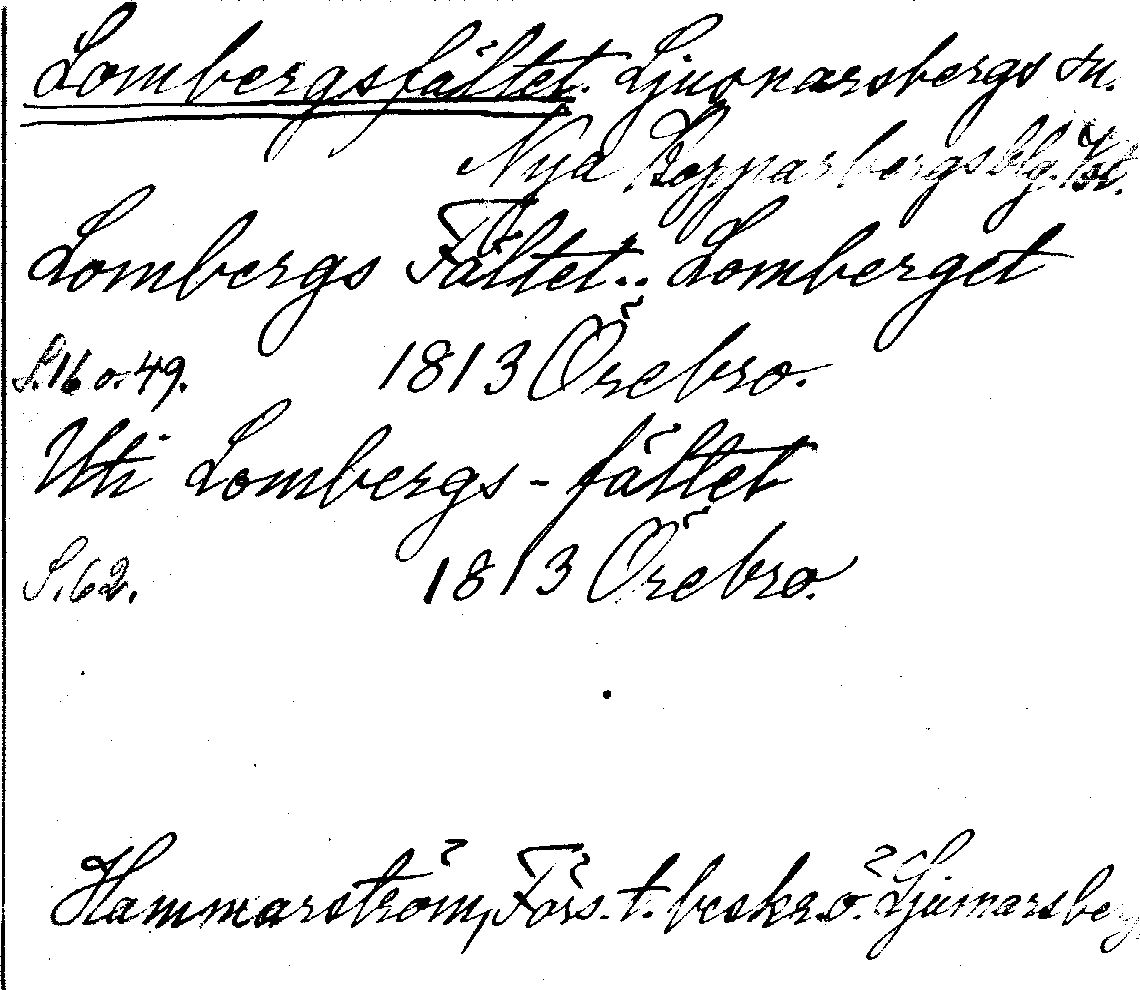 Lombergsfältet. Ljusnarsbergs sn.
Nya Kopparbergs blg. Vbt.
Lombergs Fältet.. Lomberget
S. 16 o. 49. 1813 Örebro.
Uti Lombergs-fältet
S. 62. 1813 Örebro.
Hammarström, Förs. t. beskr. ö. Ljusnarsberg